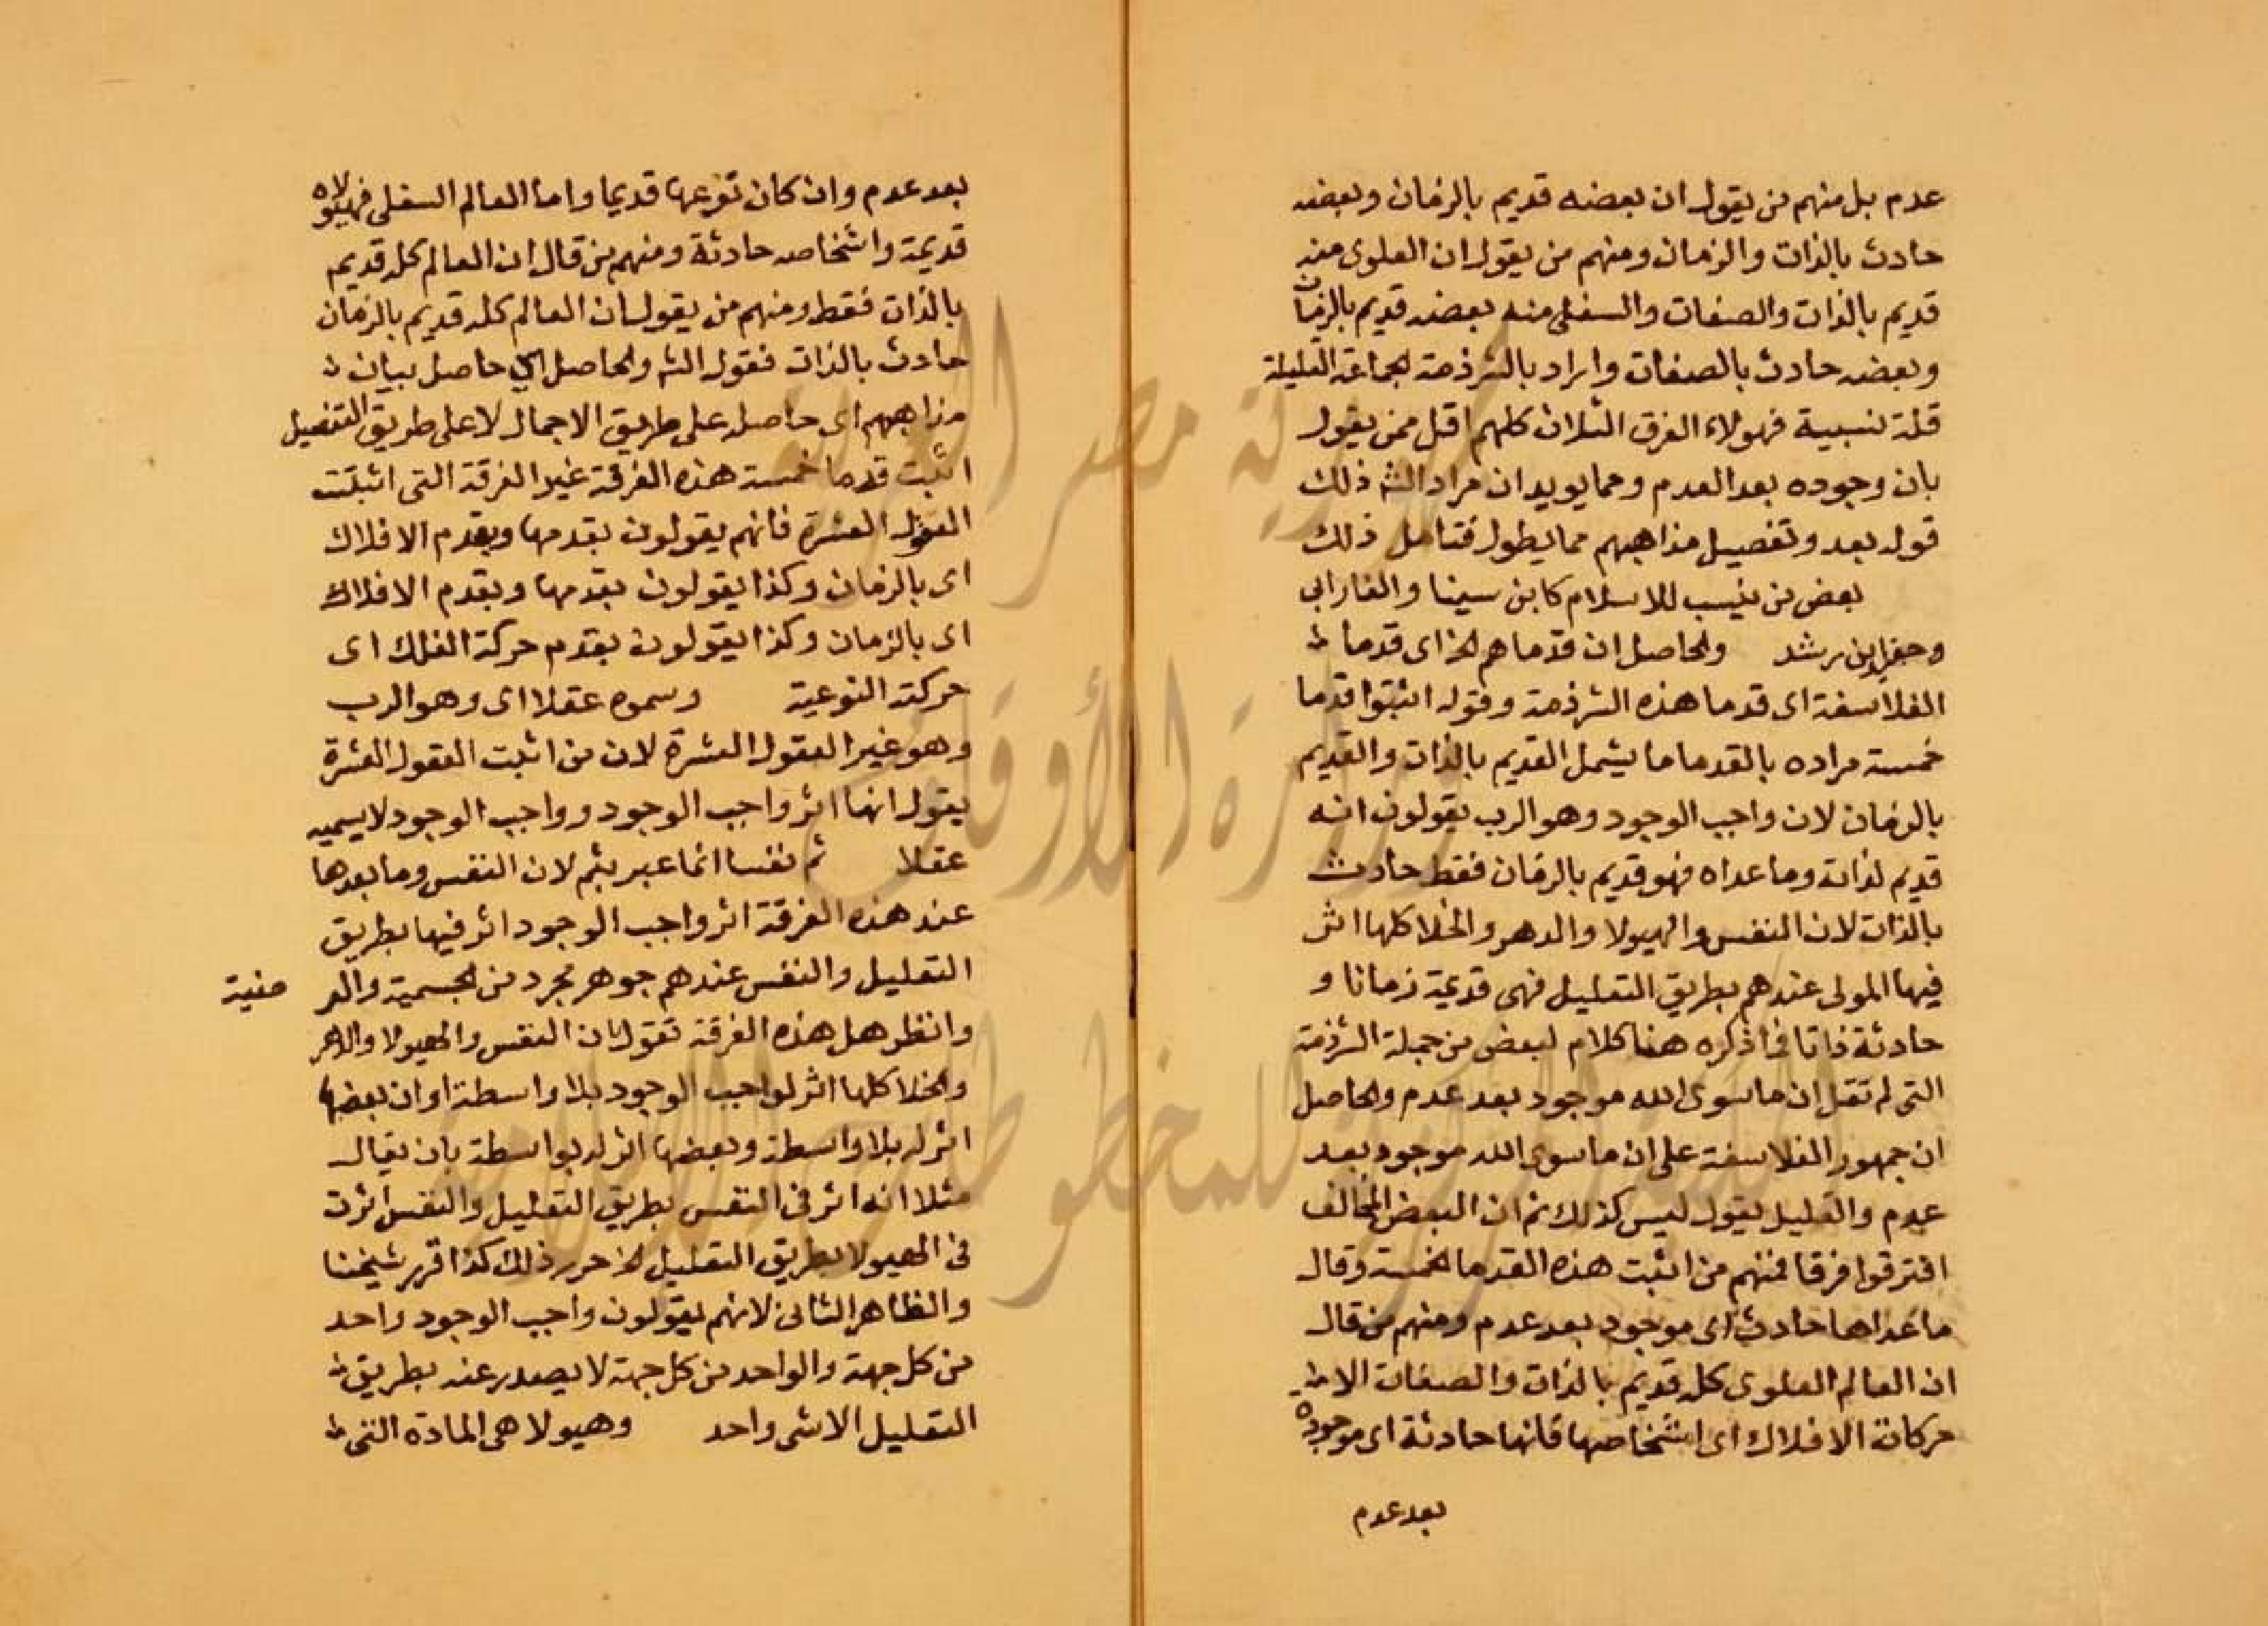 عدم بل منهم من يقول ان بعضه قديم بالزمان وبعضه
حادث بالذات والزمان ومنهم من يقول ان العلوى منه
قديم بالذات والصفات والسفلى منه بعضه قديم بالزمان
وبعضه حادث بالصفات واراد بالشرذمة الجماعة القليلة
قلة نسبية فهولاء الفرق الثلاث كلهم اقل ممن يقول
بان وجوده بعد العدم ومما يويد ان مراد الشه ذلك
قوله بعد وتفصيل مذاهبهم مما يطول فتامل ذلك
بعض من ينسب للاسلام كابن سينا والفارابى
وحفيد ابن رشد والحاصل ان قدماهم الخ اى قدما
الفلاسفة اى قدما هذه الشرذمة وقوله اثبتوا قدما
خمسة مراده بالقدما ما يشمل القديم بالذات والقديم
بالزمان لان واجب الوجود وهو الرب يقولون انه
قديم لذاته وما عداه فهو قديم بالزمان فقط حادث
بالذات لان النفس والهيولا والدهر والخلا كلها اثر
فيها المولى عندهم بطريق التعليل فهى قديمة زمانا و
حادثة ذاتا فما ذكره هنا كلام لبعض من جملة الشرذمة
التى لم تقل ان ما سوى الله موجود بعد عدم والحاصل
ان جمهور الفلاسفة على ان ما سوى الله موجود بعد
عدم والقليل يقول ليس كذلك ثم ان البعض المخالف
افترقوا فرقا فمنهم من اثبت هذه القدما الخمسة وقال
ما عداها حادث اى موجود بعد عدم ومنهم من قال
ان العالم العلوى كله قديم بالذات والصفات الا
حركات الافلاك اى اشخاصها فانها حادثة اى موجودة
بعد عدم
بعد عدم وان كان نوعها قديما واما العالم السفلى فهيولاه
قديمة واشخاصه حادثة ومنهم من قال ان العالم كله قديم
بالذات فقط ومنهم من يقول ان العالم كله قديم بالزمان
حادث بالذات فقول الشه والحاصل الخ حاصل بيان
مذاهبهم اى حاصله على طريق الاجمال لا على طريق التفصيل
اثبت قدما خمسة هذه الفرقة غير الفرقة التى اثبتت
العقول العشرة فانهم يقولون بقدمها وبقدم الافلاك
اى بالزمان وكذا يقولون بقدمها وبقدم الافلاك
اى بالزمان وكذا يقولون بقدم حركة الفلك اى
حركته النوعية وسموه عقلا اى وهو الرب
وهو غير العقول العشرة لان من اثبت العقول العشرة
يقول انها اثر واجب الوجود وواجب الوجود لا يسميه
عقلا ثم نفسا انما عبر بثم لان النفس وما بعدها
عند هذه الفرقة اثر واجب الوجود اثر فيها بطريق
التعليل والنفس عندهم جوهر مجرد من الجسمية والعر ضية
وانظر هل هذه الفرقة تقول ان النفس والهيولا والدهر
والخلا كلها اثر لواجب الوجود بلا واسطة او ان بعضها
اثر له بلا واسطة وبعضها اثر له بواسطة بان يقال
مثلا انه اثر فى النفس بطريق التعليل والنفس اثرت
فى الهيولا بطريق التعليل الخ حرر ذلك كذا قرر شيخنا
والظاهر الثانى لانهم يقولون واجب الوجود واحد
من كل جهة والواحد من كل جهة لا يصدر عنه بطريق
التعليل الا شى واحد وهيولا هى المادة التى